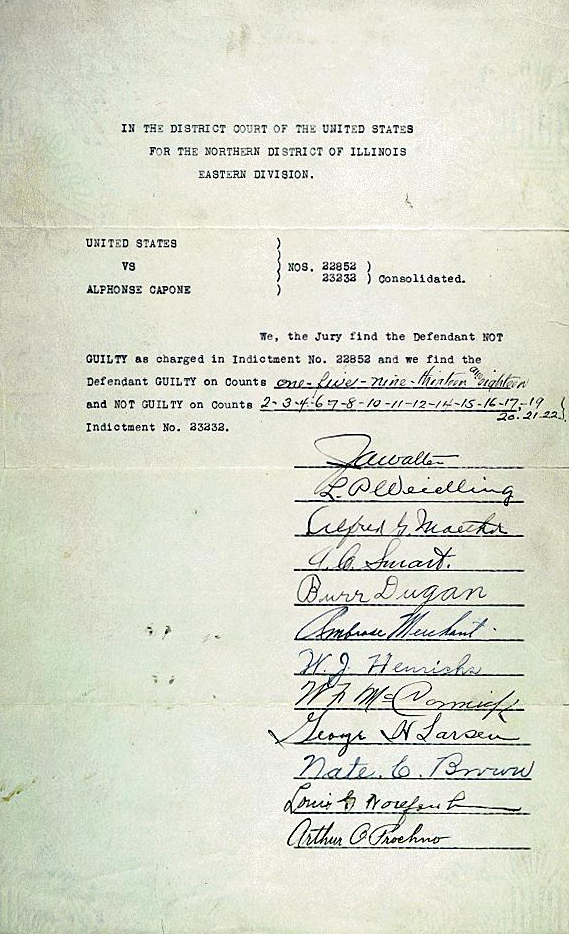 IN THE DISTRICT COURT OF THE UNITED STATES
FOR THE NORTHERN DISTRICT OF ILLINOIS
EASTERN DIVISION.
UNITED STATES
VS
ALPHONSE CAPONE
NOS. 22852
23232
Consolidated.
We, the Jury find the Defendant NOT
GUILTY as charged in Indictment No. 22852 and we find the
Defendant GUILTY on Counts one-five-nine-thirteen and eighteen
and NOT GUILTY on Counts 2-3-4-6-7-8-10-11-12-14-15-16-17-19
20-21-22
Indictment No. 23232.
L. P. Weidling
A. C. Smart.
Burr Dugan
Ambrose Merchant
W. J. Henrichs
W F McCormick
George H Larsen
Nate. C. Brown
Louis G
Arthur O Prochno